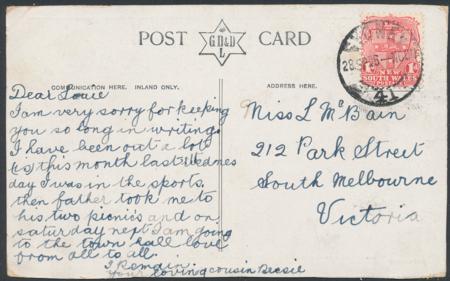 POST CARD
G.D&D
L
COMMUNICATION HERE. INLAND ONLY.
ADDRESS HERE.
Dear Louie
I am very sorry for keeping
you so long in writing
I have been out a lot
this month last Wednes
day I was in the sports,
then father took me to
his two picnics and on
saturday next I am going
to the town hall love
from all to all.
I Remain
Your loving cousin Bessie
Miss L McBain
212 Park Street
South Melbourne
Victoria
NEW
SOUTH WALES
POSTAGE
1d 1d
41